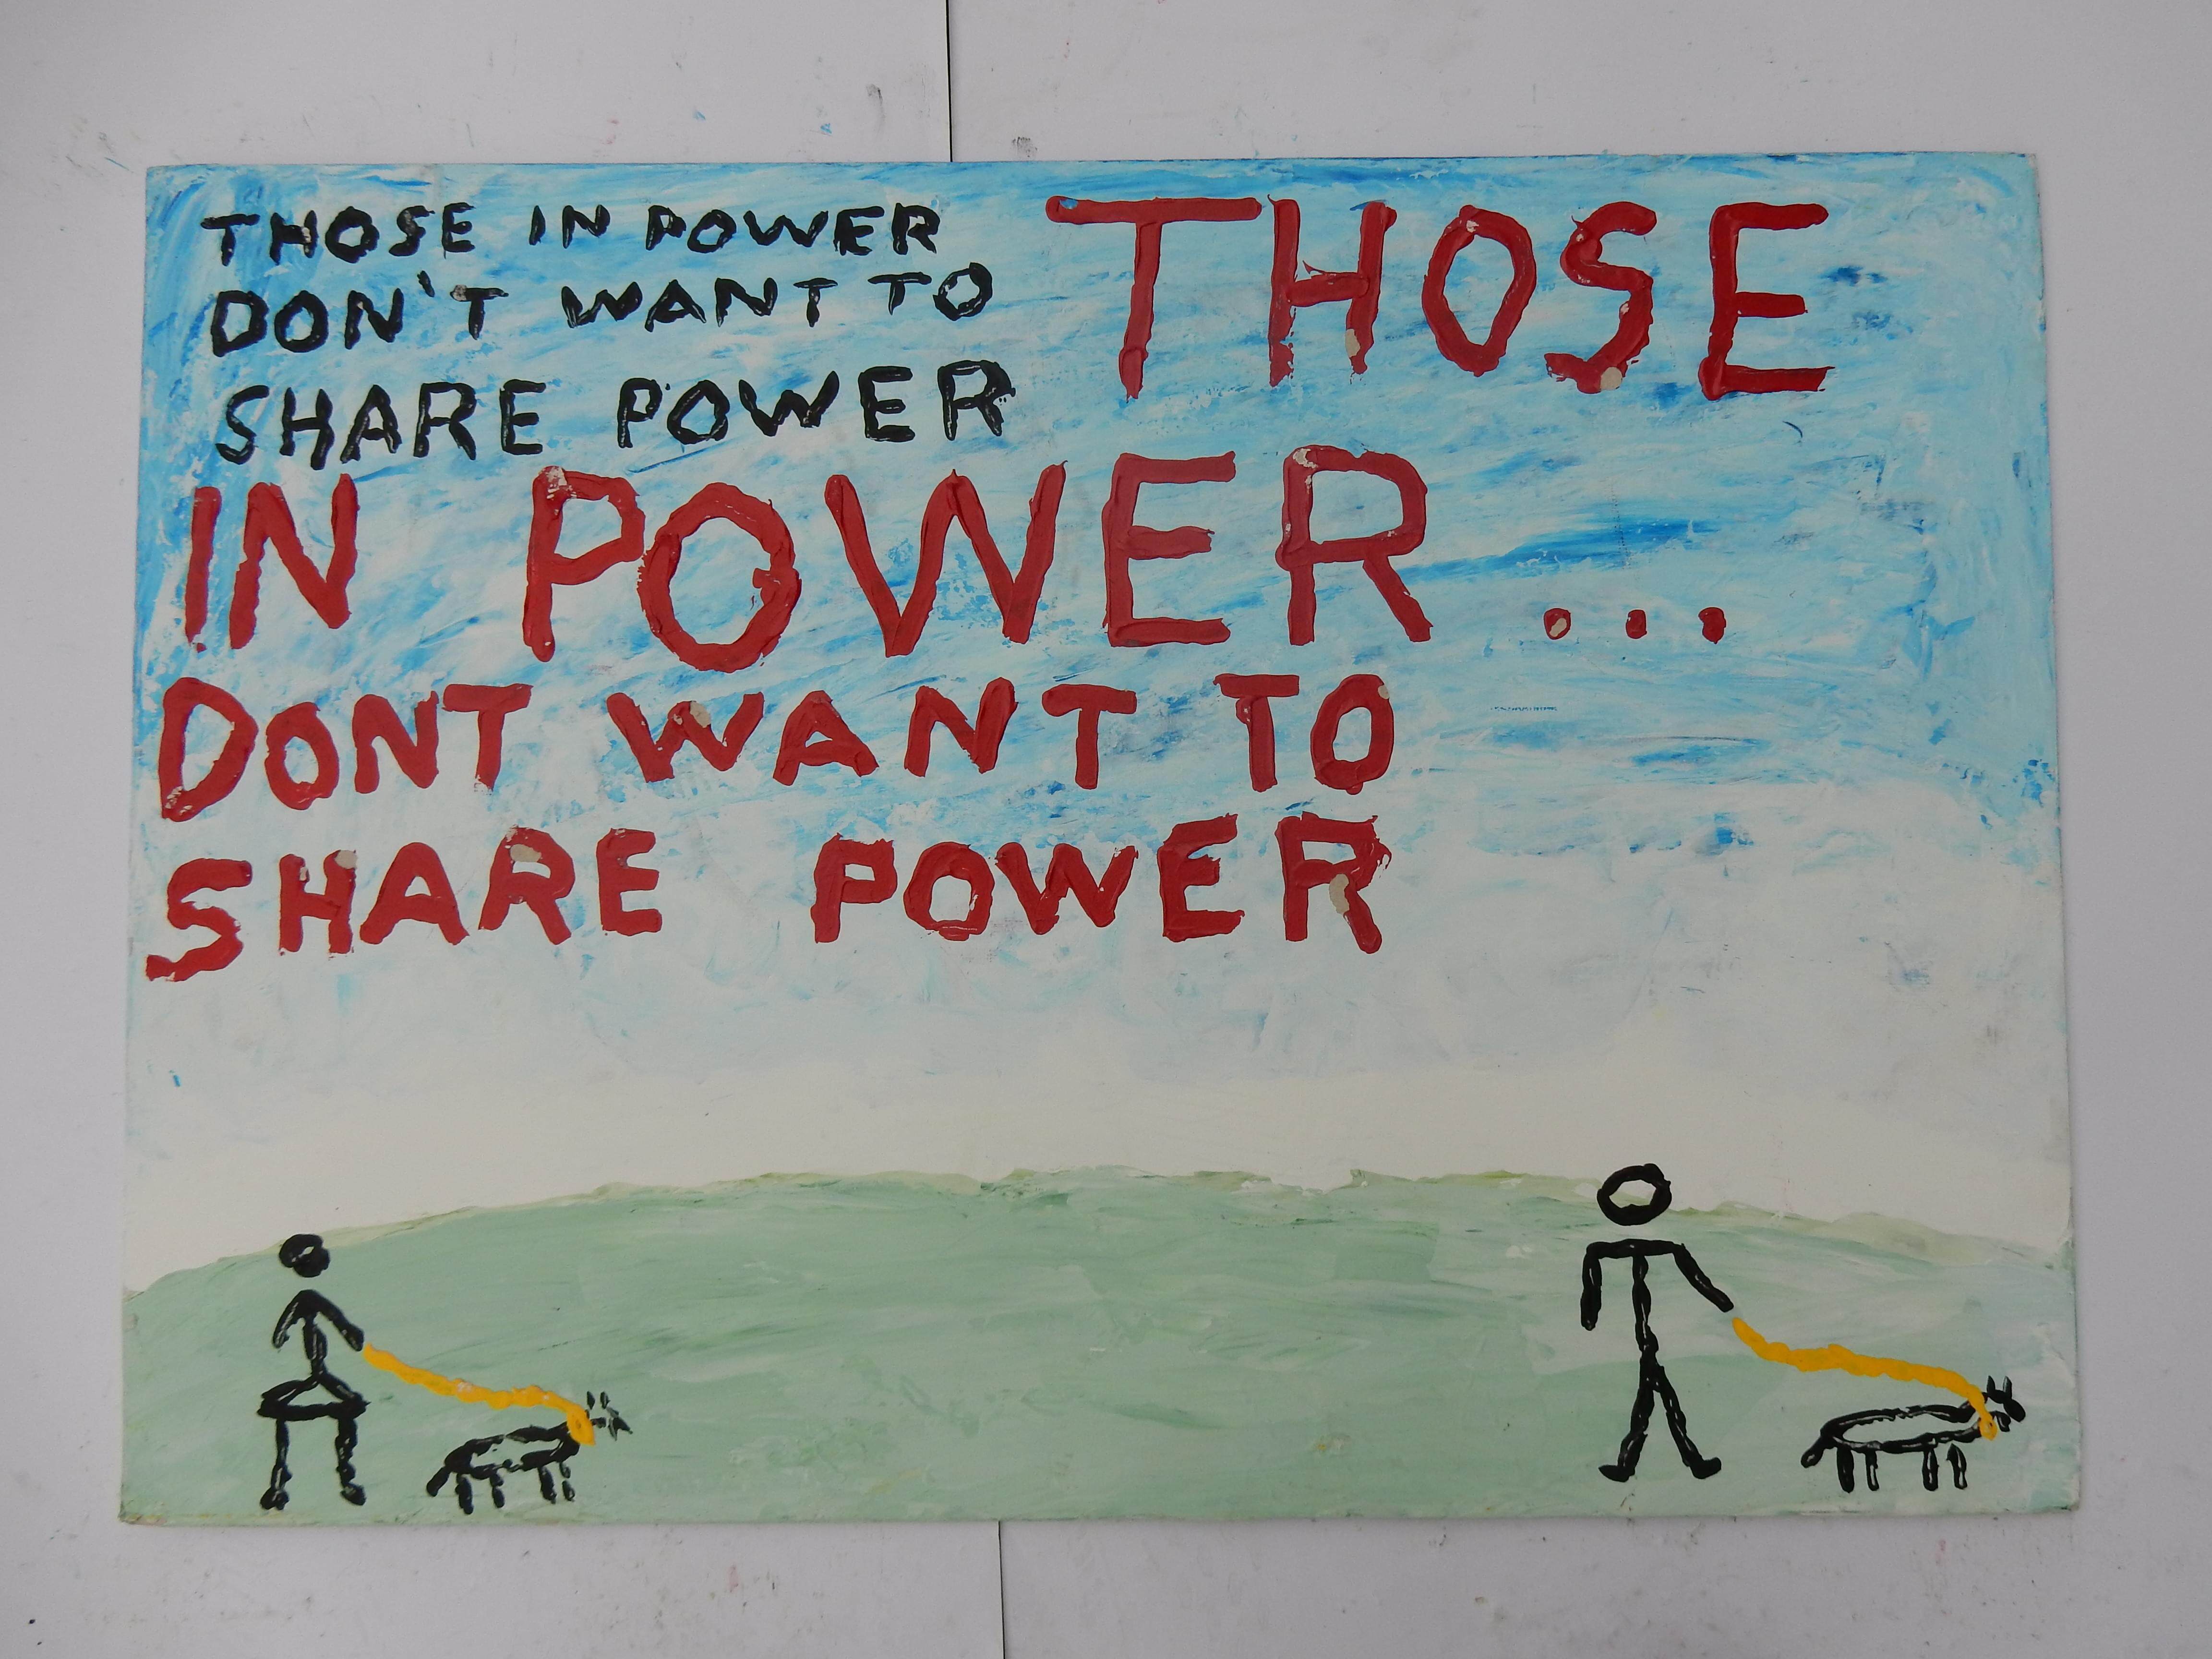 THOSE IN POWER
DON'T WANT TO
SHARE POWER
THOSE
IN POWER...
DONT WANT TO
SHARE POWER